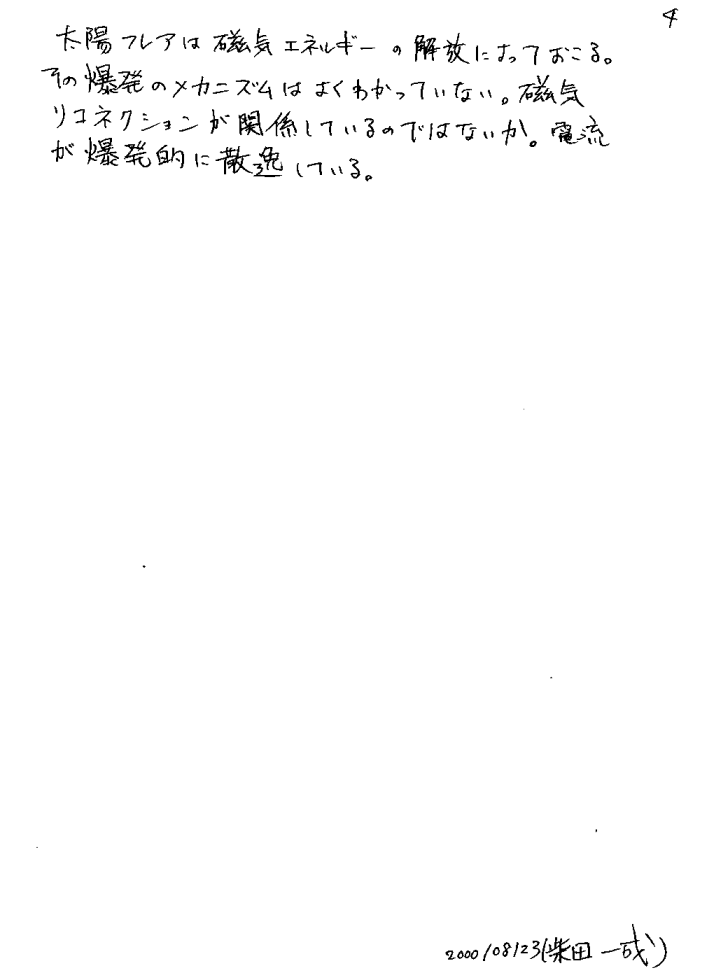 4
太陽フレアは磁気エネルギーの解放によっておこる。
その爆発のメカニズムはよくわかっていない。磁気
リコネクションが関係しているのではないか。電流
が爆発的に散逸している。
2000/08/23(柴田一成)